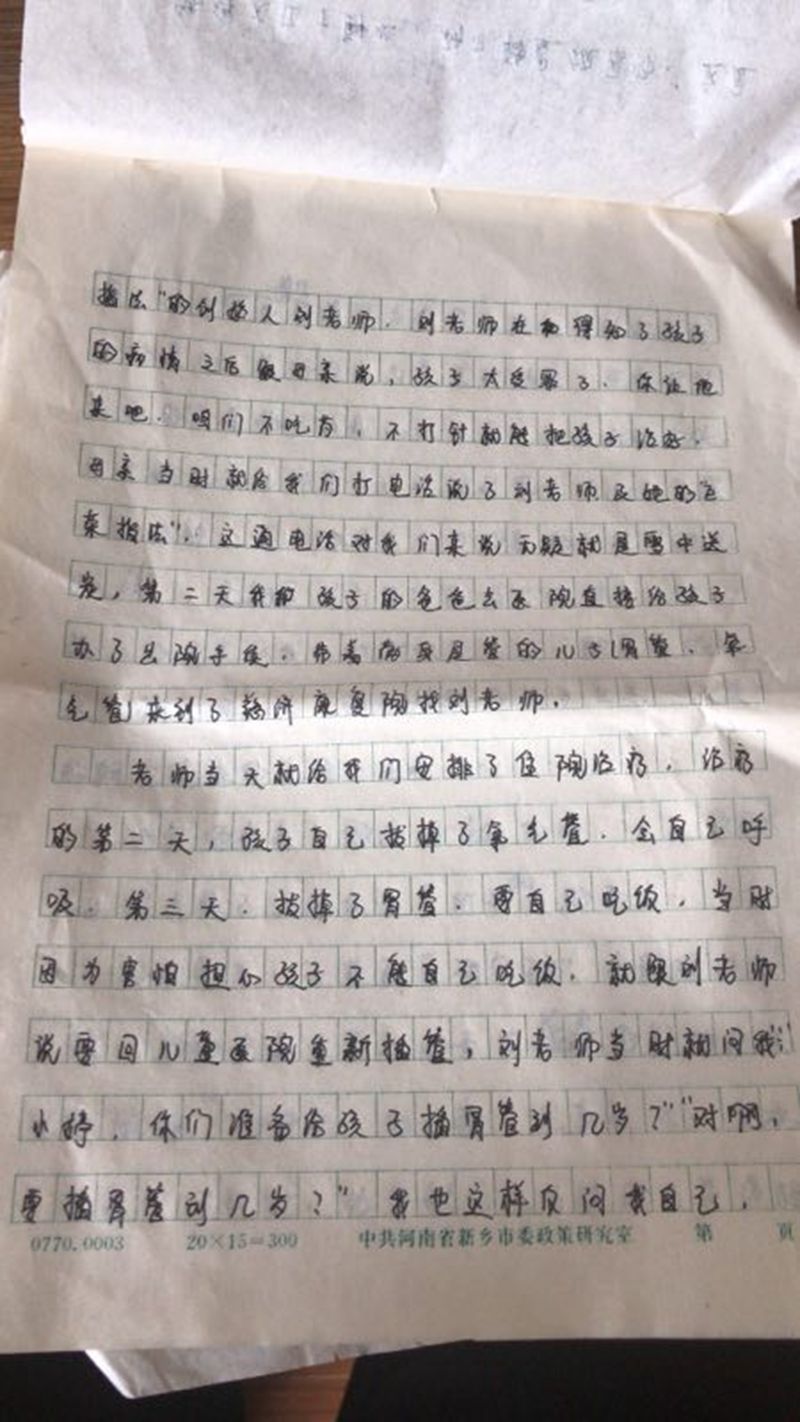 指法"的创始人刘老师.刘老师在得知了孩子
的病情之后跟母亲说,孩子太受罪了.你让他
来吧.咱们不吃药,不打针就能把孩子治好.
母亲当时就给我们打电话说了刘老师及她的"
指法".这通电话对我们来说无疑就是雪中送
炭,第二天我和孩子的爸爸去医院直接给孩子
办了出院手续.带着的儿子(胃管、氧
气管)来到了济康复院找刘老师.
老师当天就给我们安排了住院治疗.治疗
的第二天,孩子自己拔掉了氧气管.会自己呼
吸.第三天.拔掉了胃管.要自己吃饭.当时
因为害怕担心孩子不能自己吃饭.就跟刘老师
说要回儿童医院重新插管,刘老师当时就问我:"
小妤.你们准备给孩子插胃管到几岁?""对啊,
要插胃管到几岁?"我也这样反问我自己.
0770.0003 20×15=300 中共河南省新乡市委政策研究室 第 页